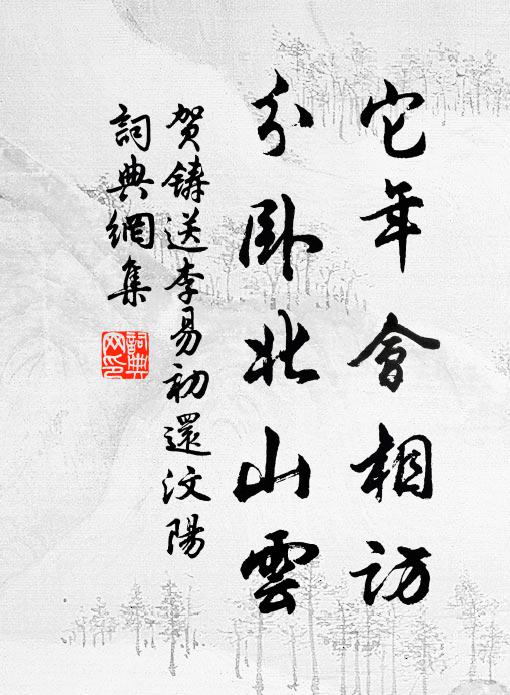 它年會相訪
分卧北山雲
贺鑄送李易初還汶陽
詞典網集
詞典
网印